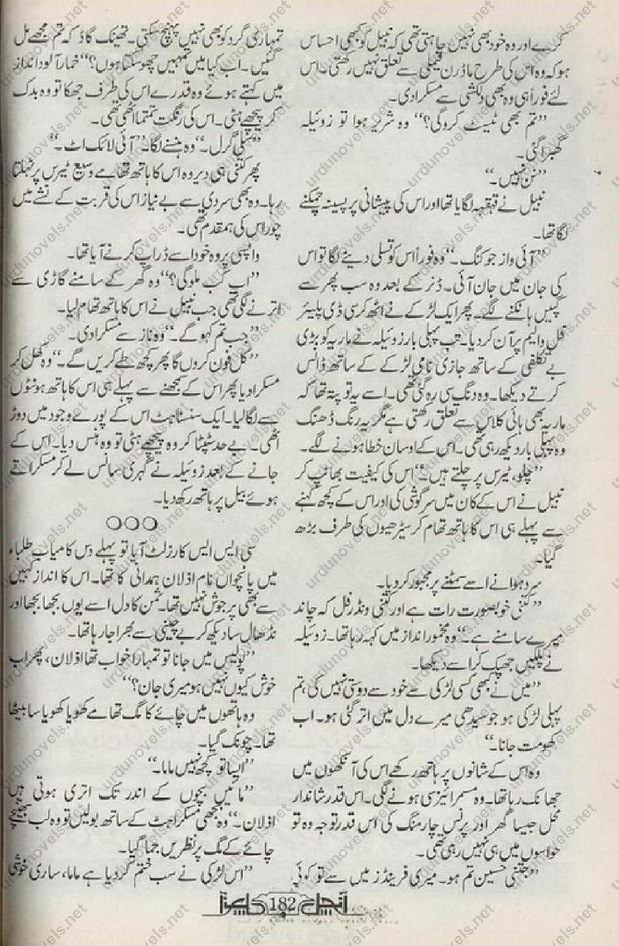 کرے اور وہ خود بھی نہیں چاہتی تھی کہ نبیل کو کبھی احساس
ہو کہ وہ اس کی طرح ماڈرن فیملی سے تعلق نہیں رکھتی، اس
لئے فوراً ہی وہ بھی دلکشی سے مسکرا دی۔
”تم بھی ٹیسٹ کرو گی؟“ وہ شریر ہوا تو زوئیلہ
گھبرا گئی۔
”نن نہیں۔“
نبیل نے قہقہہ لگایا تھا اور اس کی پیشانی پر پسینہ چمکنے
لگا تھا۔
”آئی واز جوکنگ۔“ وہ فوراً اس کو تسلی دینے لگا تو اس
کی جان میں جان آئی۔ ڈنر کے بعد وہ سب پھر سے
گپیں ہانکنے لگے۔ پھر ایک لڑکے نے اٹھ کر سی ڈی پلیئر
فل والیم پر آن کر دیا۔ تب پہلی بار زوئیلہ نے ماریہ کو بڑی
بے تکلفی کے ساتھ جازی نامی لڑکے کے ساتھ ڈانس
کرتے دیکھا۔ وہ دنگ سی رہ گئی تھی۔ اسے یہ تو پتہ تھا کہ
ماریہ بھی ہائی کلاس سے تعلق رکھتی ہے مگر یہ رنگ ڈھنگ
وہ پہلی بار دیکھ رہی تھی۔ اس کے اوسان خطا ہونے لگے۔
”چلو، ٹیرس پر چلتے ہیں۔“ اس کی کیفیت بھانپ کر
نبیل نے اس کے کان میں سرگوشی کی اور اس کے کچھ کہنے
سے پہلے ہی اس کا ہاتھ تھام کر سیڑھیوں کی طرف بڑھ
گیا۔
سرد ہوا نے اسے سمٹنے پر مجبور کر دیا۔
”کتنی خوبصورت رات ہے اور کتنی ونڈر فل کہ چاند
میرے سامنے ہے۔“ وہ مخمور انداز میں کہہ رہا تھا۔ زوئیلہ
نے پلکیں جھپک کر اسے دیکھا۔
”میں نے کبھی کسی لڑکی سے خود سے دوستی نہیں کی، تم
پہلی لڑکی ہو جو سیدھی میرے دل میں اتر گئی ہو۔ اب
کھو مت جانا۔“
وہ اس کے شانوں پر ہاتھ رکھے اس کی آنکھوں میں
جھانک رہا تھا۔ وہ مسمرائز سی ہونے لگی۔ اس قدر شاندار
محل جیسا گھر اور پرنس چارمنگ کی اس قدر توجہ وہ تو
حواسوں میں ہی نہیں رہی تھی۔
”جتنی حسین تم ہو۔ میری فرینڈز میں سے تو کوئی
تمہاری گرد کو بھی نہیں پہنچ سکتی۔ تھینک گاڈ کہ تم مجھے مل
گئیں۔ اب کیا میں تمہیں چھو سکتا ہوں؟“ خمار آلود انداز
میں کہتے ہوئے وہ قدرے اس کی طرف جھکا تو وہ بدک
کر پیچھے ہٹی۔ اس کی رنگت تمتما اٹھی تھی۔
”سلی گرل۔“ وہ ہنسنے لگا۔ ”آئی لائک اٹ۔“
پھر کتنی ہی دیر وہ اس کا ہاتھ تھامے وسیع ٹیرس پر ٹہلتا
رہا۔ وہ بھی سردی سے بے نیاز اس کی قربت کے نشے میں
چور اس کی ہمقدم تھی۔
واپسی پر وہ خود اسے ڈراپ کرنے آیا تھا۔
”اب کب ملو گی؟“ وہ گھر کے سامنے گاڑی سے
اترنے لگی تھی جب نبیل نے اس کا ہاتھ تھام لیا۔
”جب تم کہو گے۔“ وہ ناز سے مسکرا دی۔
”کل فون کروں گا پھر کچھ طے کریں گے۔“ وہ کھل کر
مسکرا دیا پھر اس کے سمجھنے سے پہلے ہی اس کا ہاتھ ہونٹوں
سے لگا لیا۔ ایک سنسناہٹ اس کے پورے وجود میں دوڑ
اٹھی۔ بے حد سٹپٹا کر وہ پیچھے ہٹی تو وہ ہنس دیا۔ اس کے
جانے کے بعد زوئیلہ نے گہری سانس لے کر مسکراتے
ہوئے بیل پر ہاتھ رکھ دیا۔
○○○
سی ایس ایس کا رزلٹ آیا تو پہلے دس کامیاب طلباء
میں پانچواں نام اذلان ہمدانی کا تھا۔ اس کا انداز کہیں
سے بھی پر جوش نہیں تھا۔ ثمن کا دل اسے یوں بجھا بجھا اور
نڈھال سا دیکھ کر بے چینی سے بھرا جا رہا تھا۔
”پولیس میں جانا تو تمہارا خواب تھا اذلان، پھر اب
خوش کیوں نہیں ہو میری جان؟“
وہ ہاتھوں میں چائے کا مگ تھامے کھویا کھویا سا بیٹھا
تھا۔ چونک گیا۔
”ایسا تو کچھ نہیں ماما۔“
”مائیں بچوں کے اندر تک اتری ہوتی ہیں
اذلان۔“ وہ بھی مسکراہٹ کے ساتھ بولیں تو وہ لب بھینچے
چائے کے مگ پر نظریں جما گیا۔
”اس لڑکی نے سب ختم کر دیا ہے ماما، ساری خوشی
آنچل 182
urdunovels.net